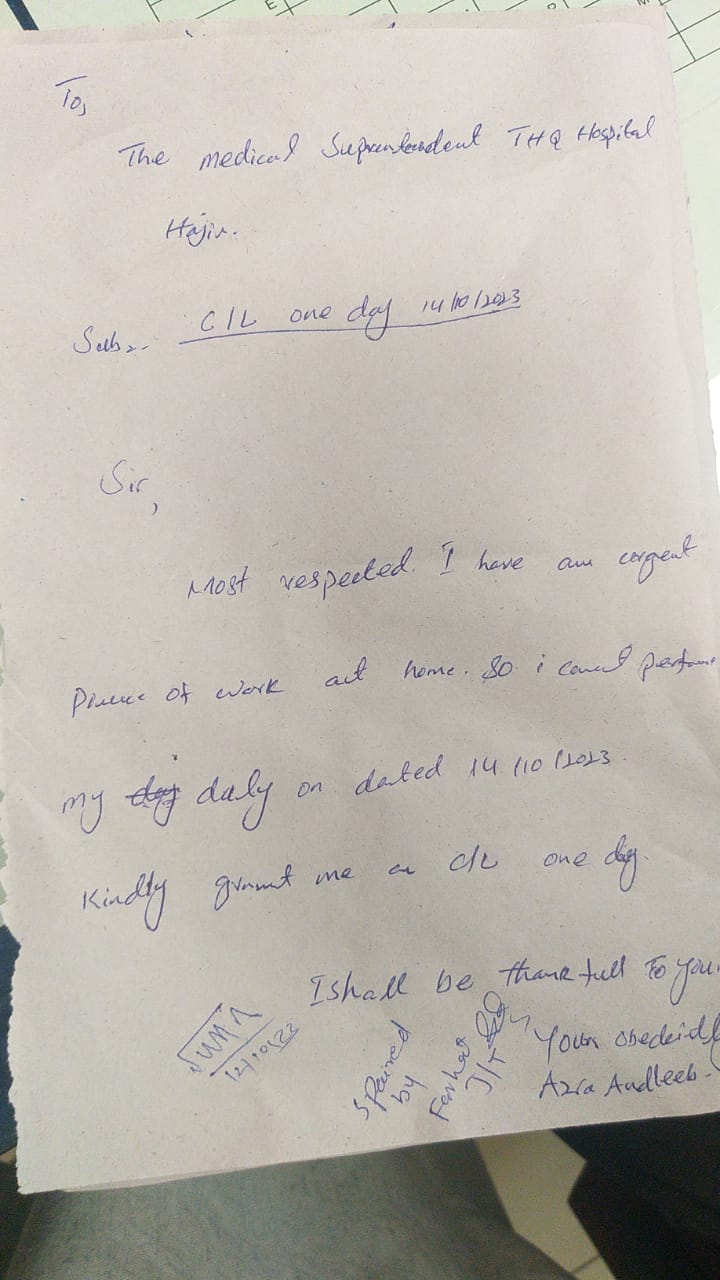 To,
The medical Suprentendent THQ Hospital
Hajir.
Sub:- C/L one day 14/10/2023
Sir,
Most respected. I have an urgent
Piece of work at home. So i can't perform
my duty on dated 14/10/2023.
Kindly grant me a C/L one day.
I shall be thankfull To you.
Yours obedeintly
Azra Andleeb.
12/10/23
Spaired
by
Farhat
J/T